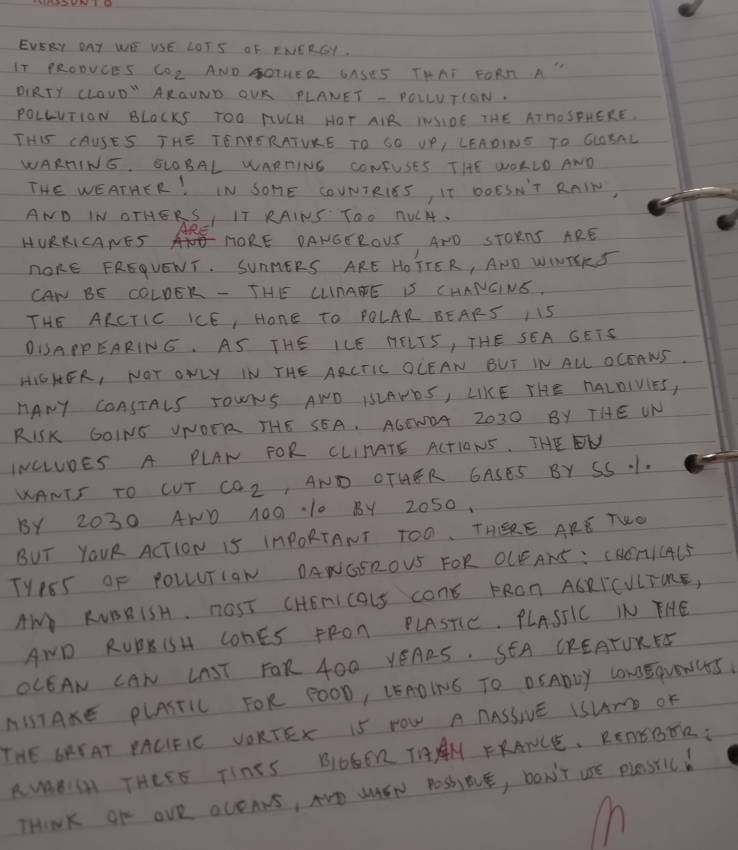 RIASSUNTO
EVERY DAY WE USE LOTS OF ENERGY.
IT PRODUCES CO2 AND OTHER GASES THAT FORM A "
DIRTY CLOUD" AROUND OUR PLANET - POLLUTION.
POLLUTION BLOCKS TOO MUCH HOT AIR INSIDE THE ATMOSPHERE.
THIS CAUSES THE TEMPERATURE TO GO UP, LEADING TO GLOBAL
WARMING. GLOBAL WARMING CONFUSES THE WORLD AND
THE WEATHER! IN SOME COUNTRIES, IT DOESN'T RAIN,
AND IN OTHERS, IT RAINS TOO MUCH.
HURRICANES ARE MORE DANGEROUS, AND STORMS ARE
MORE FREQUENT. SUMMERS ARE HOTTER, AND WINTERS
CAN BE COLDER - THE CLIMATE IS CHANGING.
THE ARCTIC ICE, HOME TO POLAR BEARS, IS
DISAPPEARING. AS THE ICE MELTS, THE SEA GETS
HIGHER, NOT ONLY IN THE ARCTIC OCEAN BUT IN ALL OCEANS.
MANY COASTALS TOWNS AND ISLANDS, LIKE THE MALDIVIES,
RISK GOING UNDER THE SEA. AGENDA 2030 BY THE UN
INCLUDES A PLAN FOR CLIMATE ACTIONS. THE EU
WANTS TO CUT CO2, AND OTHER GASES BY 55 %
BY 2030 AND 100 % BY 2050.
BUT YOUR ACTION IS IMPORTANT TOO. THERE ARE TWO
TYPES OF POLLUTION DANGEROUS FOR OCEANS: CHEMICALS
AND RUBBISH. MOST CHEMICALS COME FROM AGRICULTURE,
AND RUBBISH COMES FROM PLASTIC. PLASTIC IN THE
OCEAN CAN LAST FOR 400 YEARS. SEA CREATURES
MISTAKE PLASTIC FOR FOOD, LEADING TO DEADLY CONSEQUENCES.
THE GREAT PACIFIC VORTEX IS NOW A MASSIVE ISLAND OF
RUBBISH THREE TIMES BIGGER THAN FRANCE. REMEBER:
THINK OF OUR OCEANS, AND WHEN POSSIBLE, DON'T USE PLASTIC!